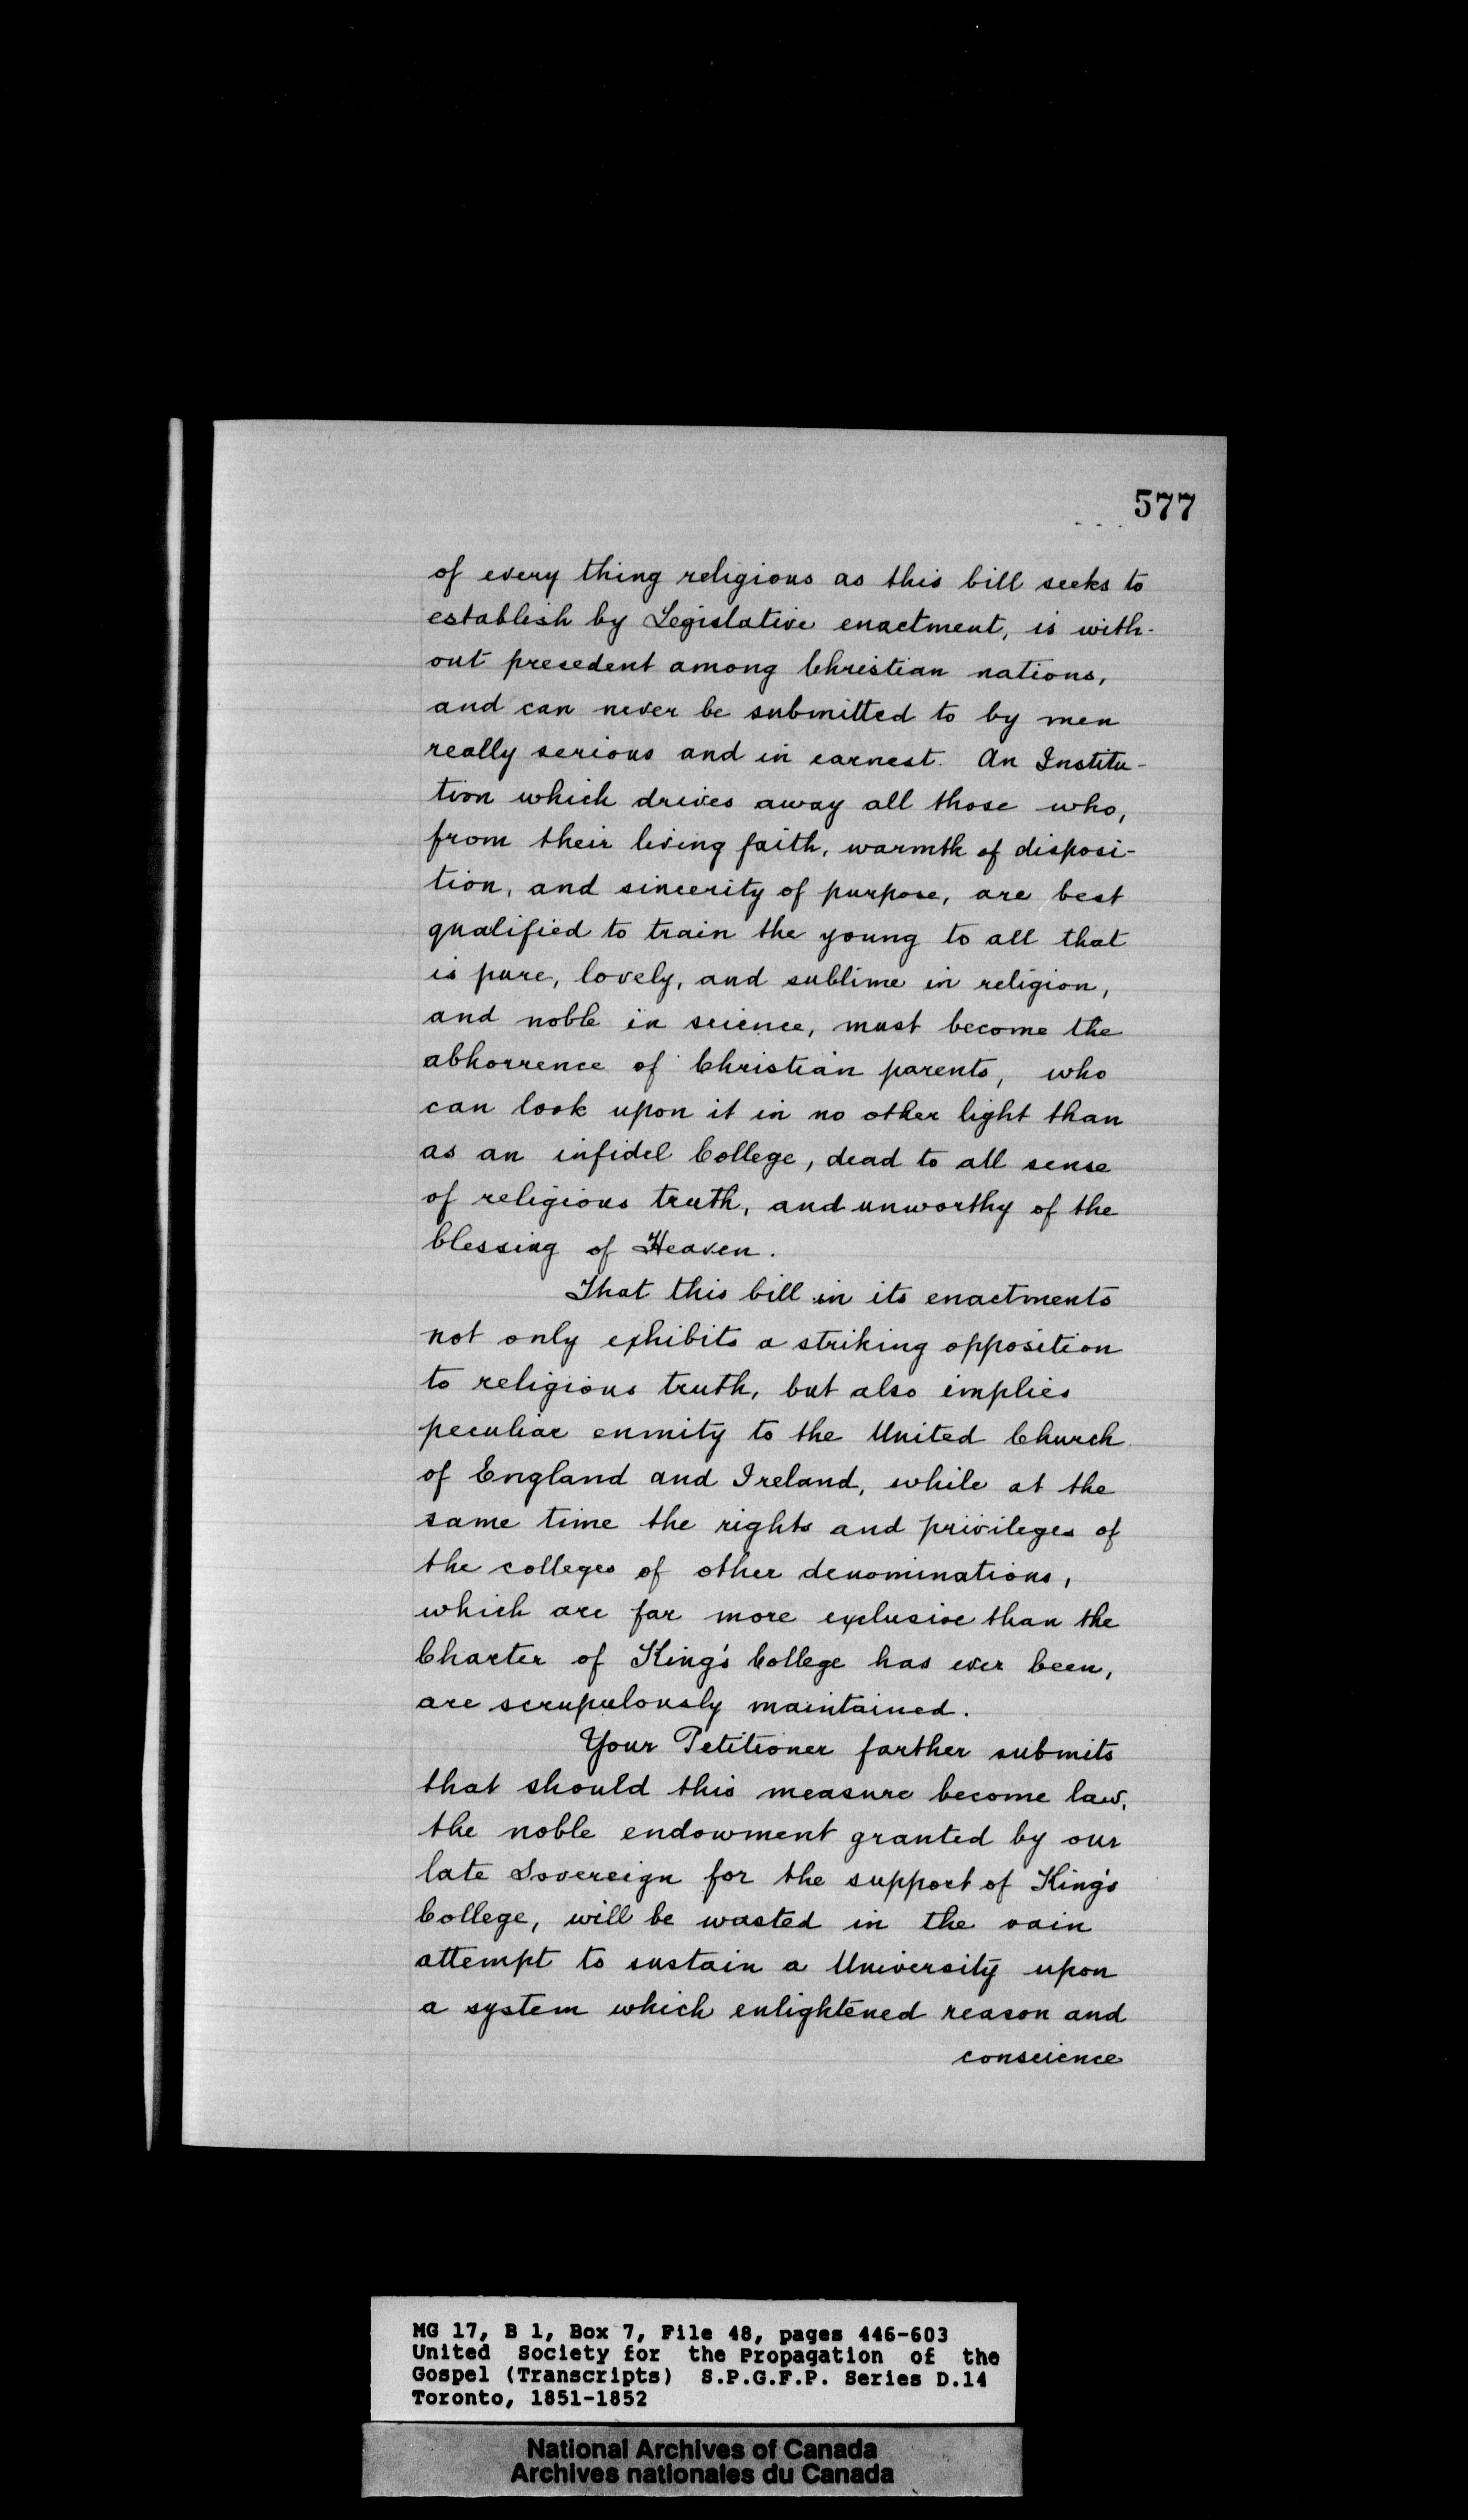 577
of every thing religious as this bill seeks to
establish by Legislative enactment, is with-
out precedent among Christian nations,
and can never be submitted to by men
really serious and in earnest. An Institu-
tion which drives away all those who,
from their living faith, warmth of disposi-
tion, and sincerity of purpose, are best
qualified to train the young to all that
is pure, lovely, and sublime in religion,
and noble in science, must become the
abhorrence of Christian parents, who
can look upon it in no other light than
as an infidel College, dead to all sense
of religious truth, and unworthy of the
blessing of Heaven.
That this bill in its enactments
not only exhibits a striking opposition
to religious truth, but also implies
peculiar enmity to the United Church
of England and Ireland, while at the
same time the rights and privileges of
the colleges of other denominations,
which are far more exclusive than the
Charter of King's College has ever been,
are scrupulously maintained.
Your Petitioner farther submits
that should this measure become law,
the noble endowment granted by our
late Sovereign for the support of King's
College, will be wasted in the vain
attempt to sustain a University upon
a system which enlightened reason and
conscience
MG 17, B 1, Box 7, File 48, pages 446-603
United Society for the Propagation of the
Gospel (Transcripts) S.P.G.F.P. Series D.14
Toronto, 1851-1852
National Archives of Canada
Archives nationales du Canada